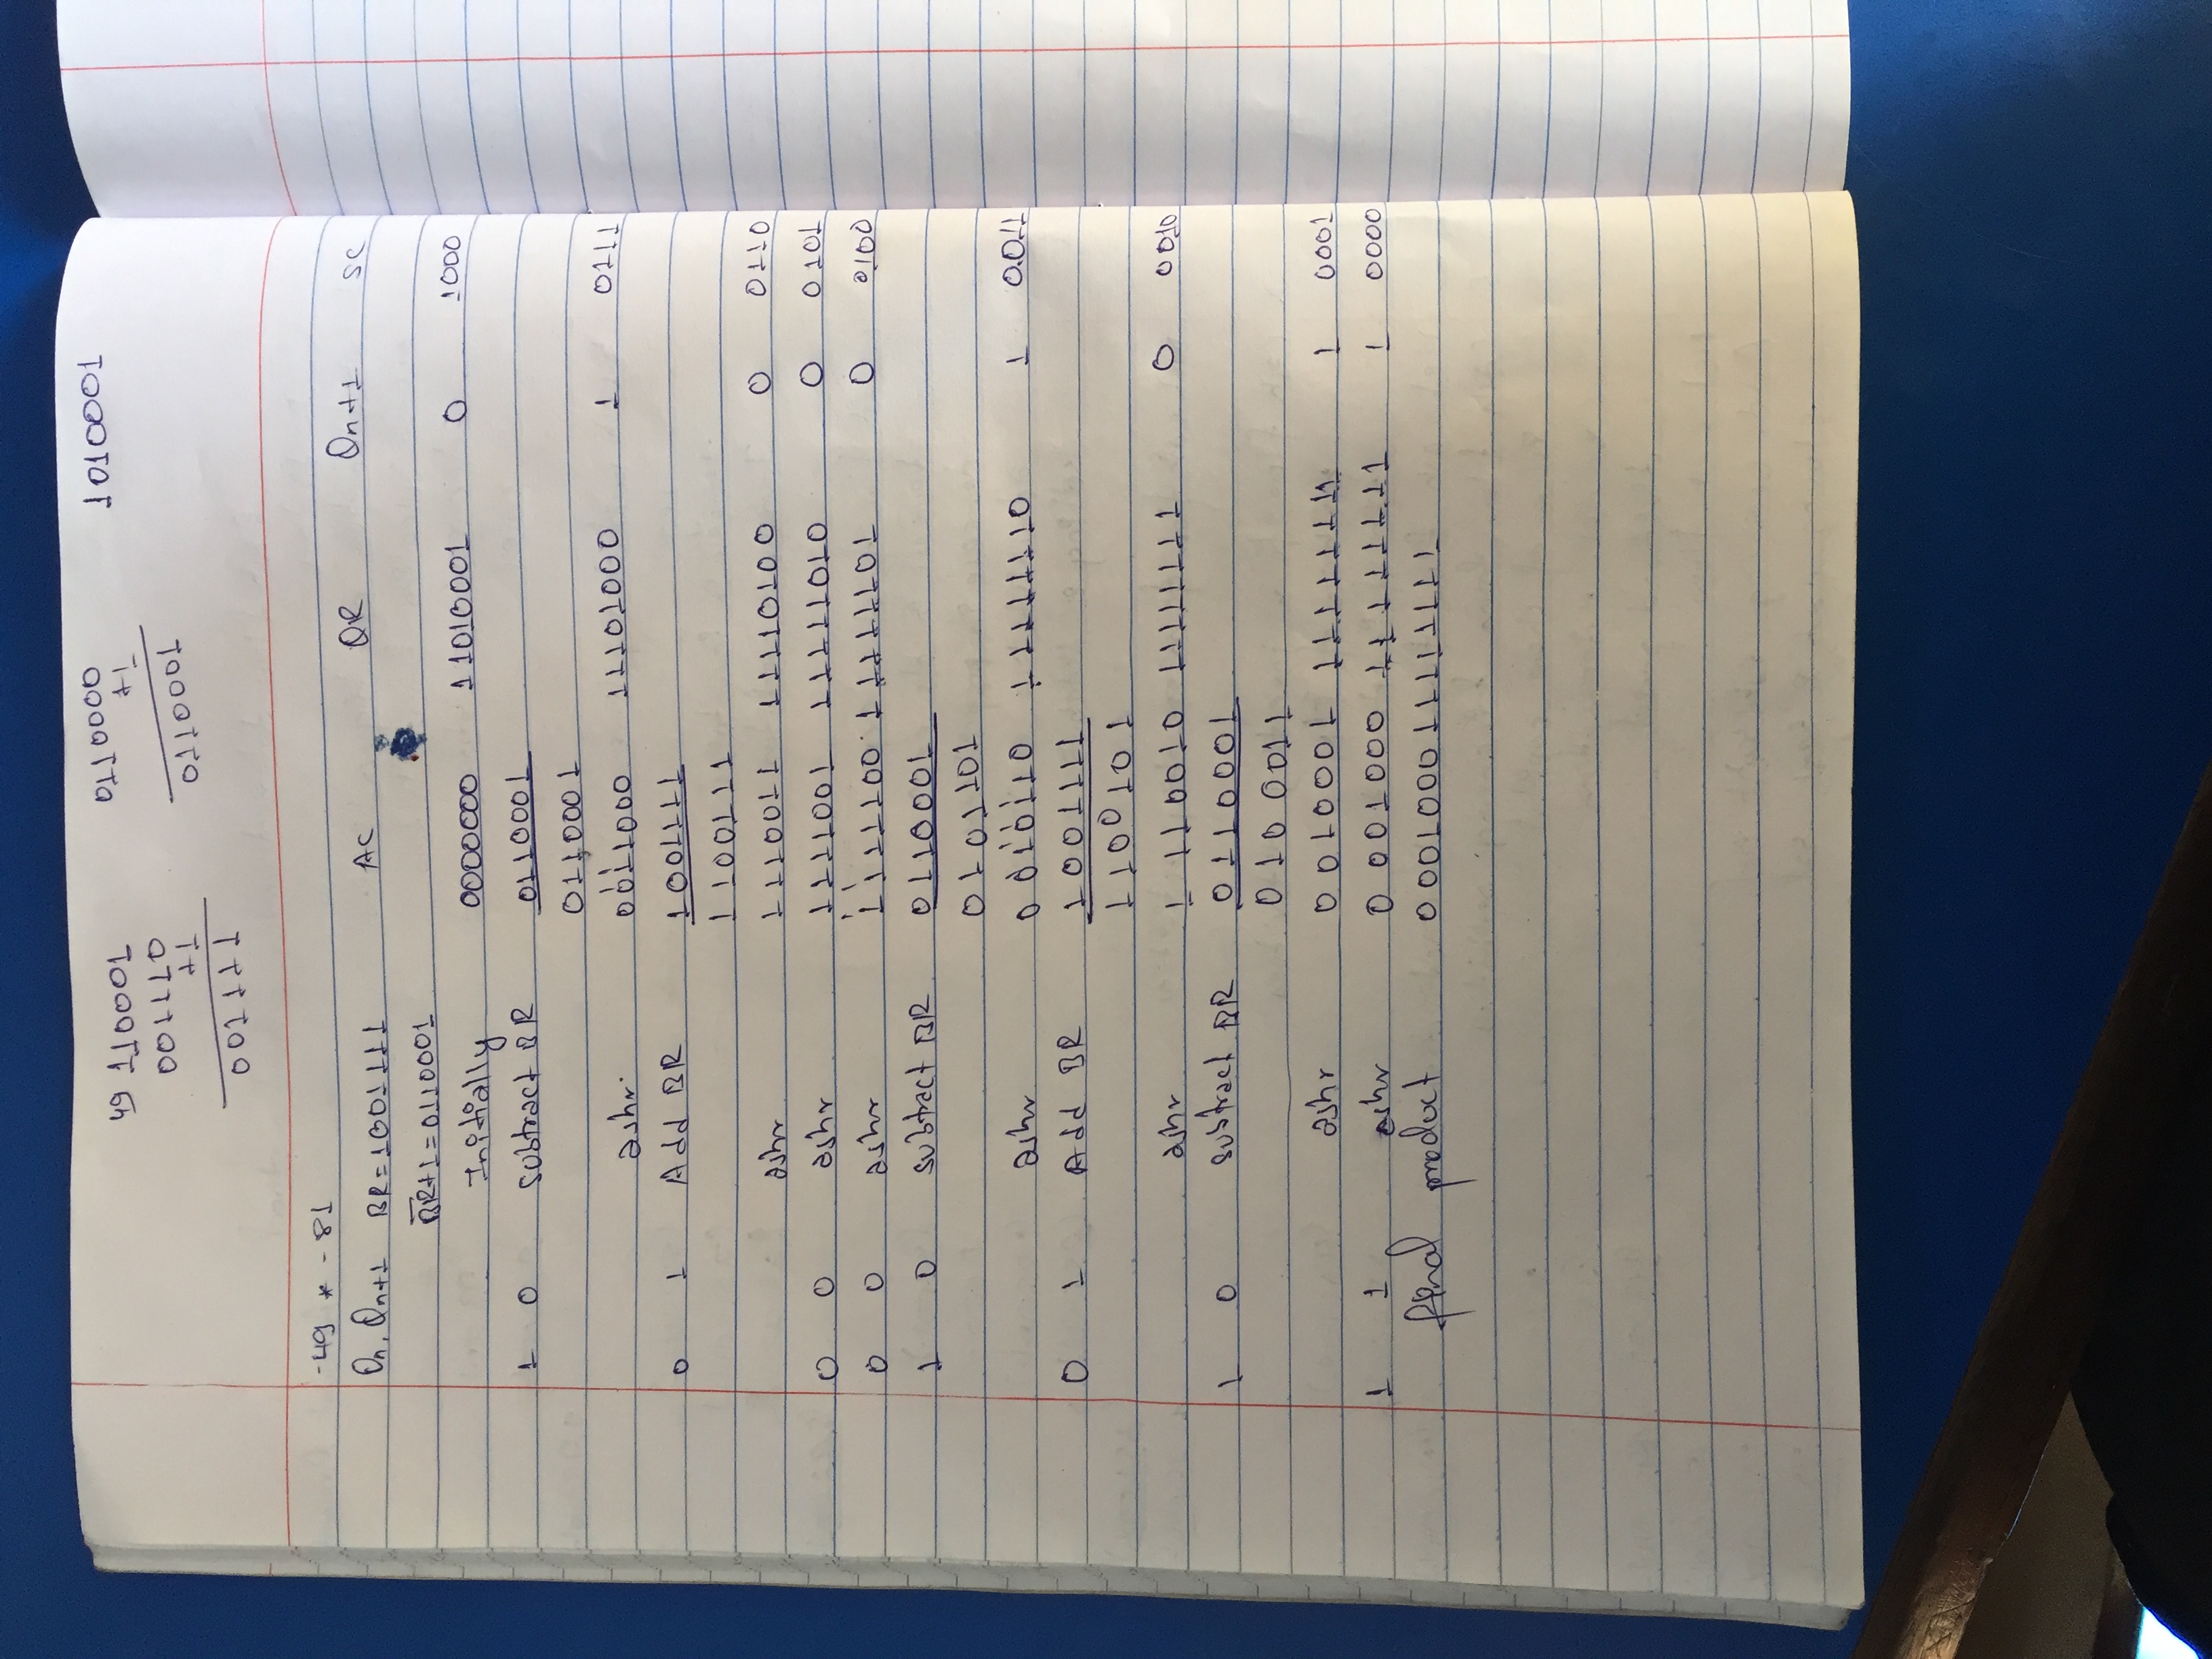 49 110001
001110
+1
001111
0110000
+1
0110001
1010001
-49 * -81
Qn, Qn+1 BR=1001111 AC QR Qn+1 SC
BR+1=0110001
Initially 0000000 11010001 0 1000
1 0 subtract BR 0110001
0110001
ashr 0011000 11101000 1 0111
0 1 Add BR 1001111
1100111
ashr 1110011 11110100 0 0110
0 0 ashr 1111001 11111010 0 0101
0 0 ashr 1111100 11111101 0 0100
1 0 subtract BR 0110001
0101101
ashr 0010110 11111110 1 0011
0 1 Add BR 1001111
1100101
ashr 1110010 11111111 0 0010
1 0 subtract BR 0110001
0100011
ashr 0010001 11111111 1 0001
1 1 ashr 0001000 11111111 1 0000
final product 000100011111111